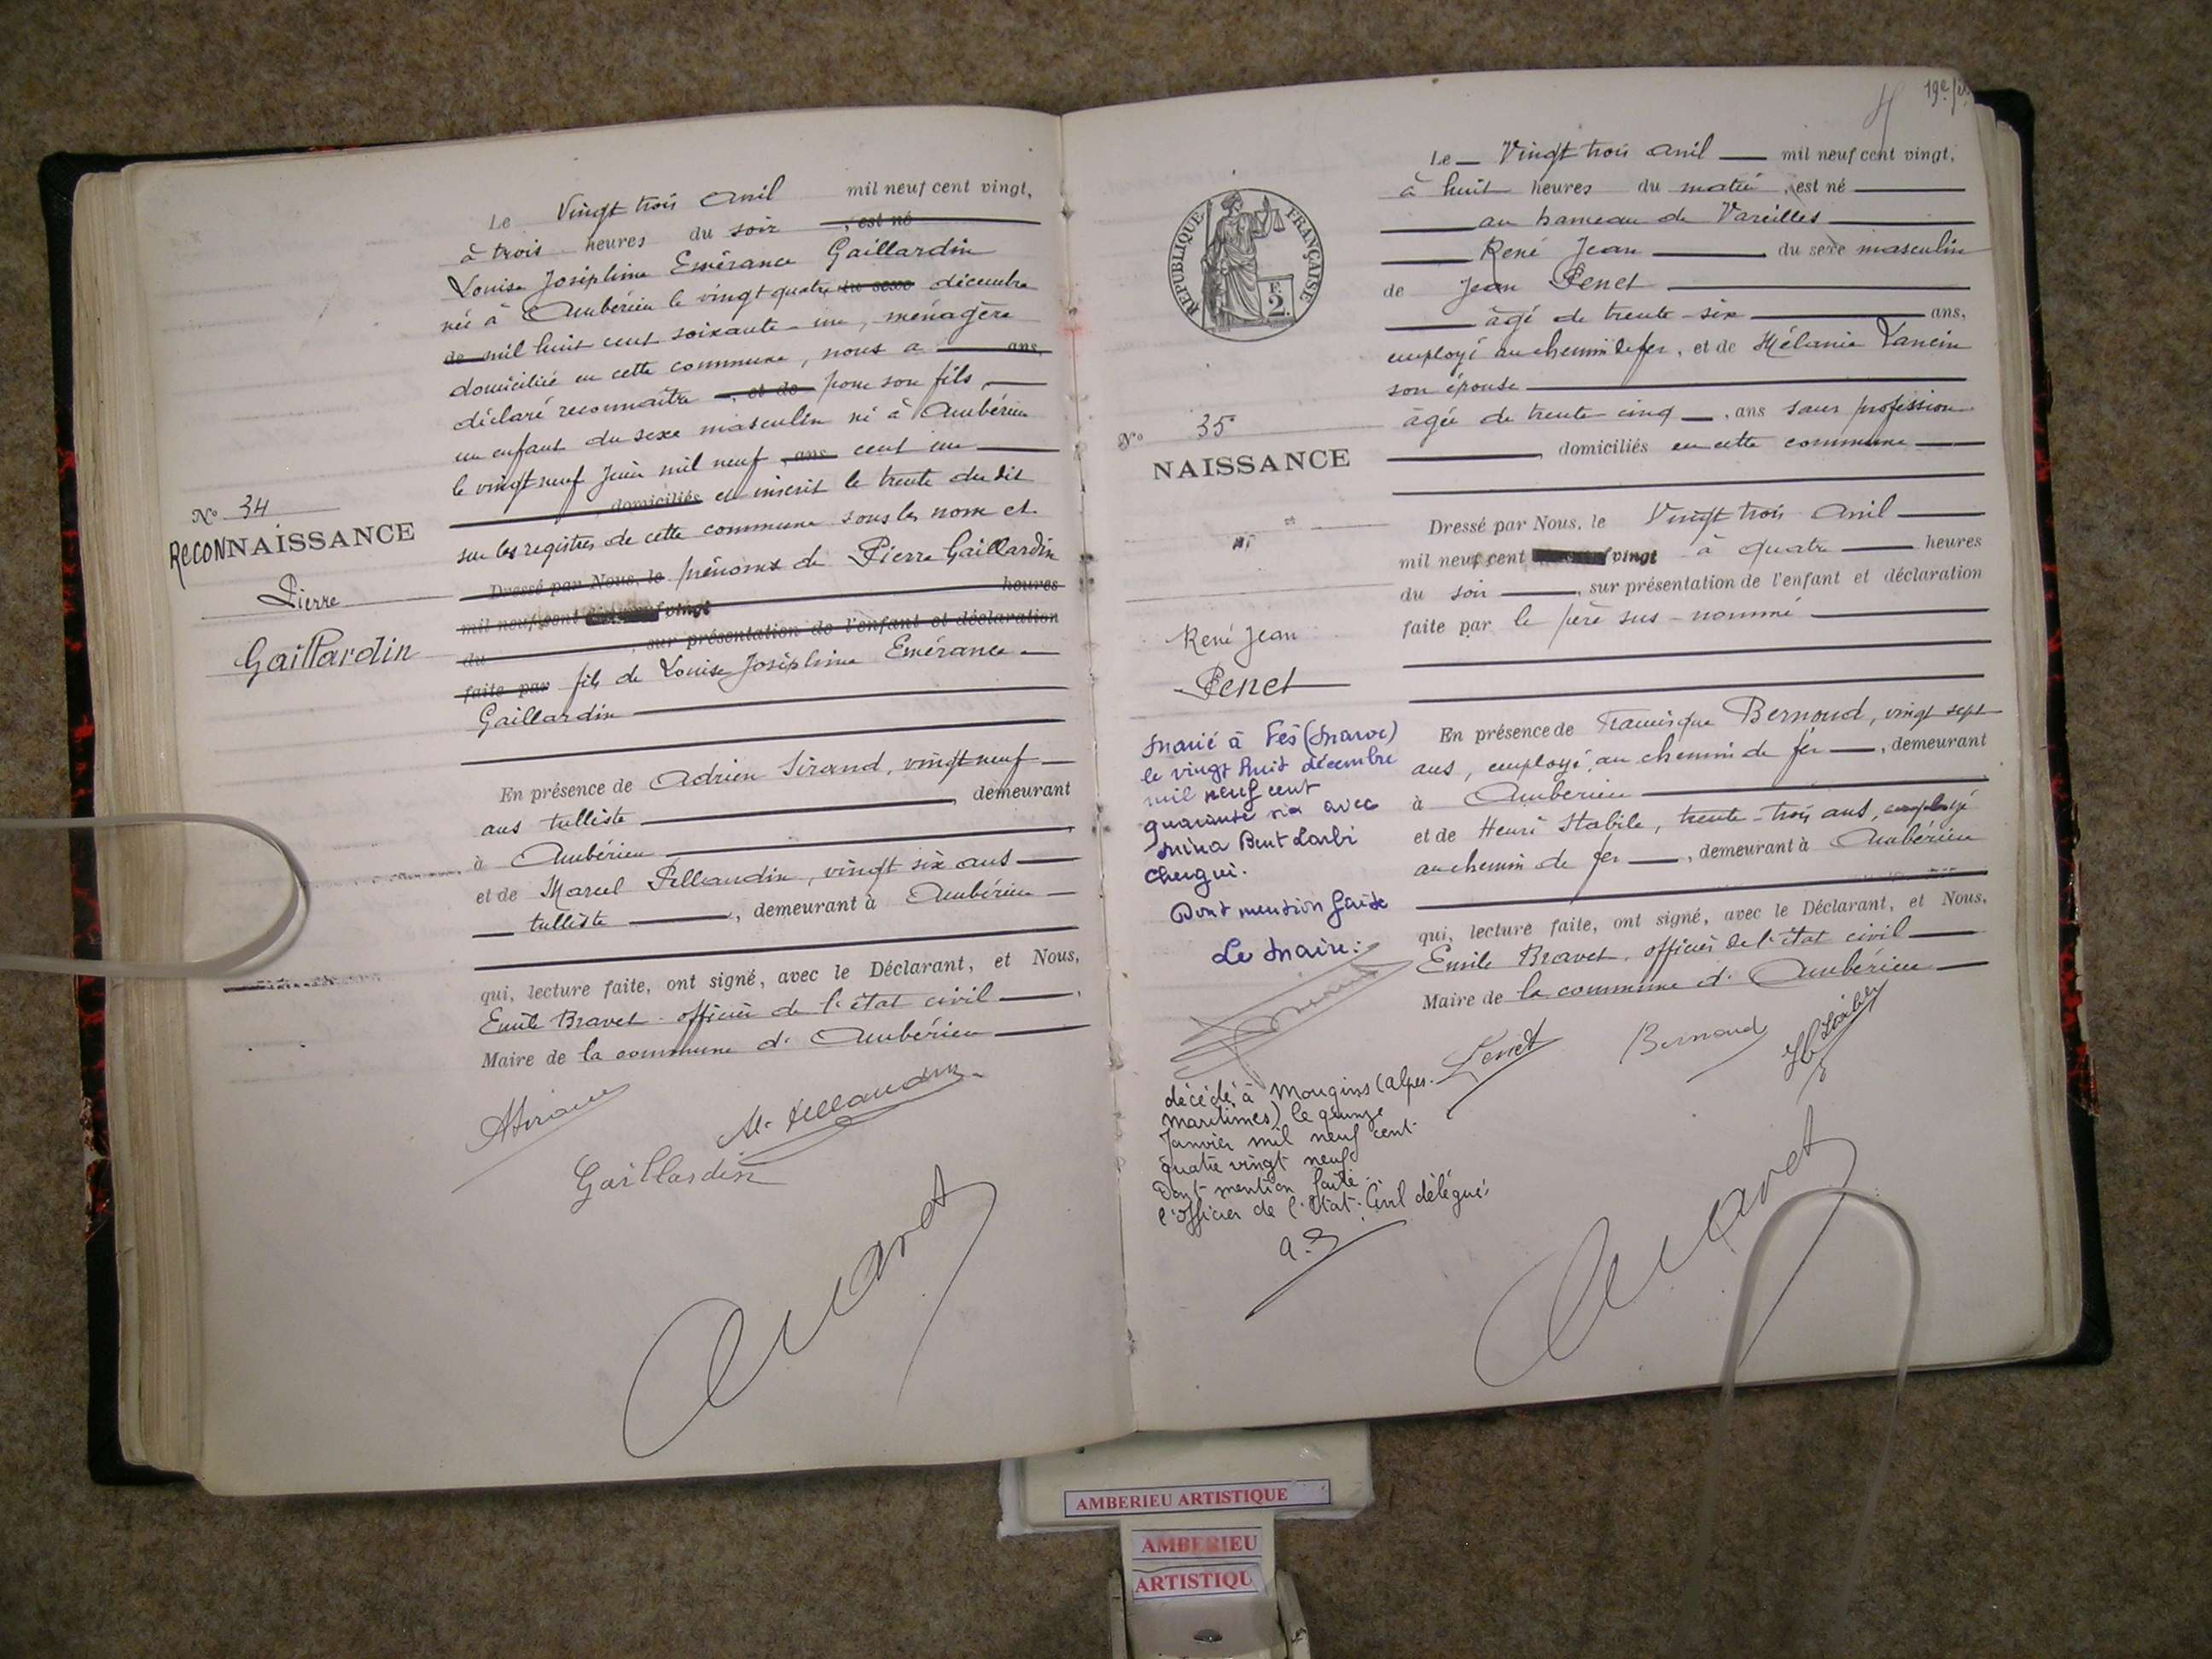 Le Vingt trois avril mil neuf cent vingt,
à trois heures du soir , est né
Louise Joséphine Emérance Gaillardin
née à Ambérieu le vingt quatre du sexe décembre
de mil huit cent soixante - un, ménagère
domiciliée en cette commune, nous a ans,
déclaré reconnaître , et de pour son fils,
un enfant du sexe masculin né à Ambérieu
le vingt neuf Juin mil neuf , ans cent un
, domiciliés et inscrit le trente du dit
sur les registres de cette commune sous les nom et
Dressé par Nous, le prénoms de Pierre Gaillardin
mil neuf cent vingt heures
du , sur présentation de l'enfant et déclaration
faite par fils de Louise Joséphine Emérance
Gaillardin
En présence de Adrien Sirand, vingt neuf
ans tulliste , demeurant
à Ambérieu
et de Marcel Pellaudin, vingt six ans
tulliste , demeurant à Ambérieu
qui, lecture faite, ont signé, avec le Déclarant, et Nous,
Emile Bravet officier de l'état civil ,
Maire de la commune d'Ambérieu
Gaillardin
No 34
RECONNAISSANCE
Pierre
Gaillardin
19e
Le Vingt trois avril mil neuf cent vingt,
à huit heures du matin , est né
au hameau de Vareilles
René Jean du sexe masculin
de Jean Penet
âgé de trente - six ans,
employé au chemin de fer, et de Mélanie Vancin
son épouse
âgée de trente cinq , ans sans profession
, domiciliés en cette commune
Dressé par Nous, le Vingt trois avril
mil neuf cent vingt à quatre heures
du soir , sur présentation de l'enfant et déclaration
faite par le père sus - nommé
En présence de Francisque Bernoud, vingt sept
ans, employé au chemin de fer , demeurant
à Ambérieu
et de Henri Stabile, trente - trois ans, employé
au chemin de fer , demeurant à Ambérieu
qui, lecture faite, ont signé, avec le Déclarant, et Nous,
Emile Bravet, officier de l'état civil
Maire de la commune d'Ambérieu
Penet Bernoud
REPUBLIQUE FRANÇAISE
F. 2.
No 35
NAISSANCE
René Jean
Penet
Marié à Fès (Maroc)
le vingt huit décembre
mil neuf cent
quarante six avec
Mina Bent Larbi
Chergui.
Dont mention faite
Le Maire:
décédé à Mougins (Alpes-
Maritimes) le quinze
Janvier mil neuf cent
quatre vingt neuf
Dont mention faite.
l'officier de l'Etat-Civil délégué:
AMBERIEU ARTISTIQUE
AMBERIEU
ARTISTIQU